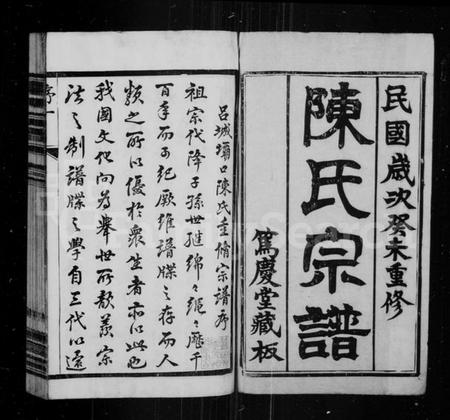 民國歲次癸未重修
陳氏宗譜
篤慶堂藏板
呂城壩口陳氏重脩宗譜序
祖宗代降子孫世繼綿〻緜〻歷千
百年而可紀厥維譜牒之存而人
類之所以優於衆生者亦以此也
我國文化向為舉世所欽羨宗
法之制譜牒之學自三代以還
序一